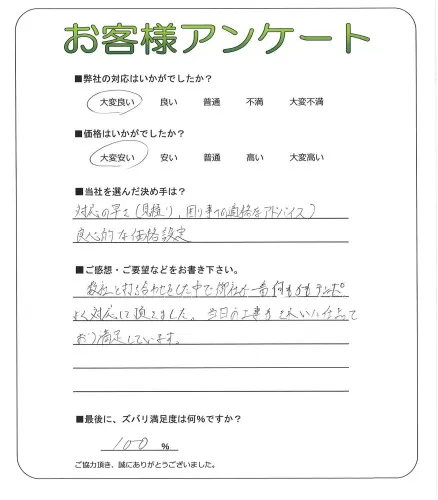 お客様アンケート
■弊社の対応はいかがでしたか？
大変良い 良い 普通 不満 大変不満
■価格はいかがでしたか？
大変安い 安い 普通 高い 大変高い
■当社を選んだ決め手は？
対応の早さ(見積り、困り事の適格なアドバイス)
良心的な価格設定
■ご感想・ご要望などをお書き下さい。
数社と打ち合わせをした中で御社が一番何もかもテンポ
よく対応して頂きました。当日の工事もきれいに仕上って
おり満足しています。
■最後に、ズバリ満足度は何%ですか？
100 %
ご協力頂き、誠にありがとうございました。